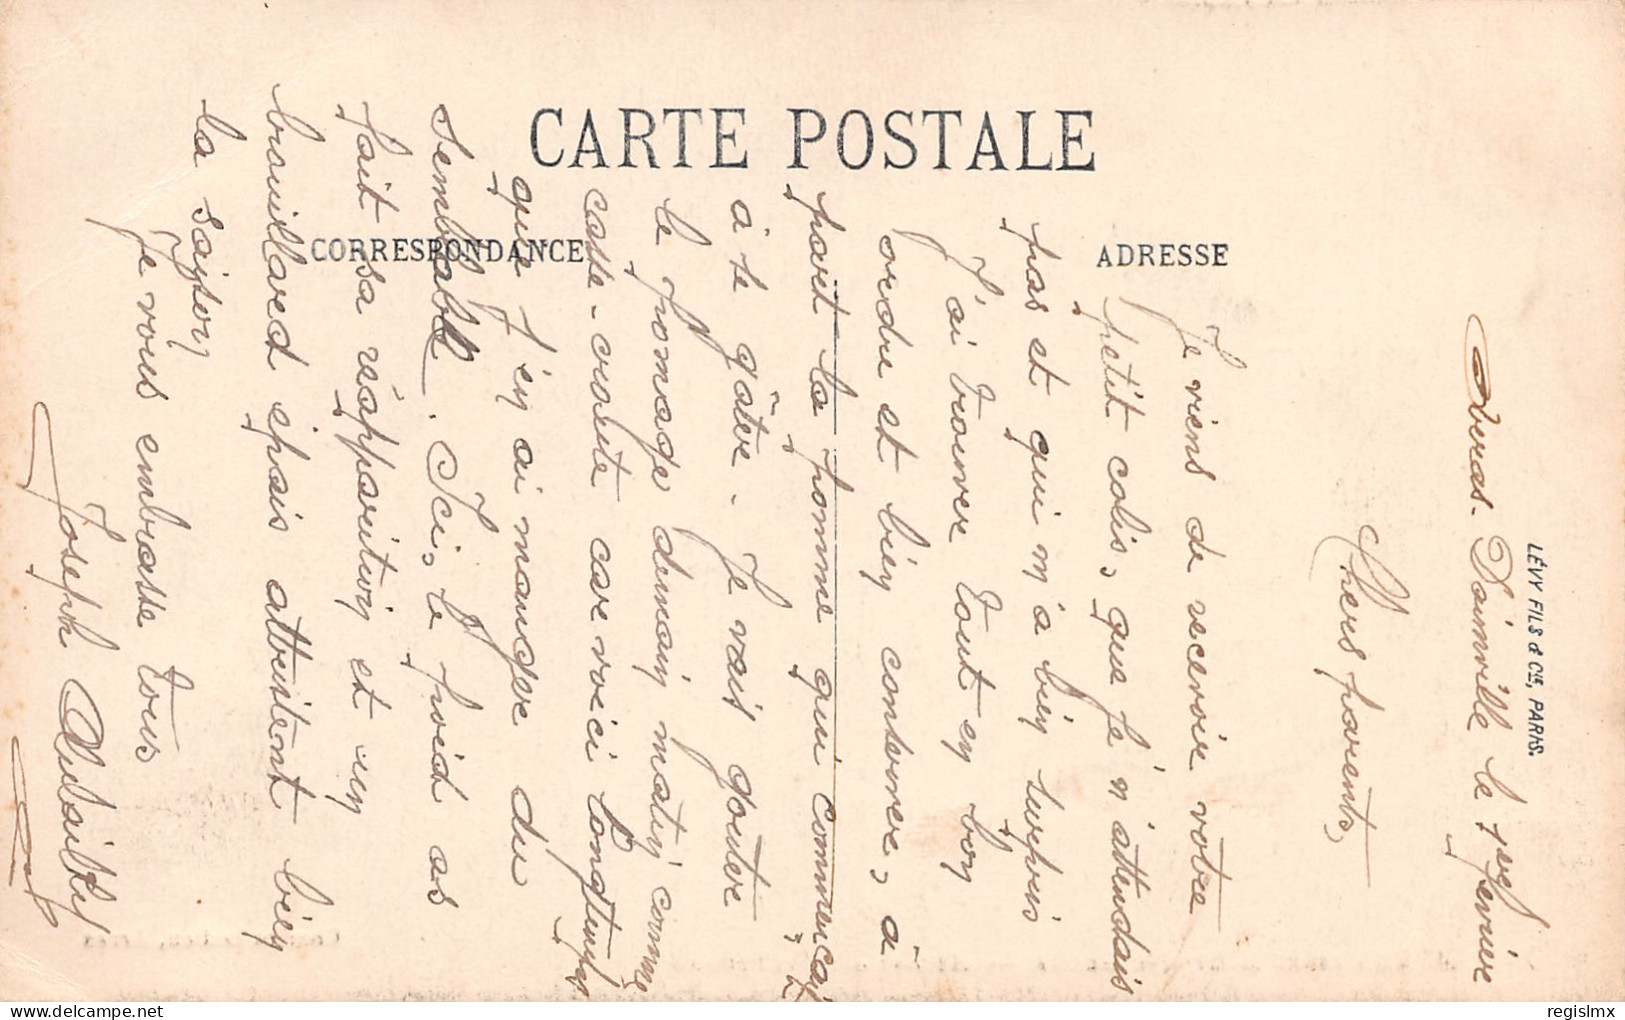 CARTE POSTALE
CORRESPONDANCE
ADRESSE
LÉVY FILS & Cie, PARIS.
Duras-Dainville le 1er fevrier
Chers parents,
Je viens de recevoir votre
petit colis, que je n'attendais
pas et qui m'a bien surpris
J'ai trouver tout en bon
ordre et bien conserver, a
part la pomme qui commencait
à se gâter. Je vais gouter
le fromage demain matin comme
casse-croute car voici longtemps
que j'en ai manger du
semblable. Ici, le froid as
fait sa réapparition et un
brouillard épais
bien
la saison
Je vous embrasse tous
Joseph
regislmx